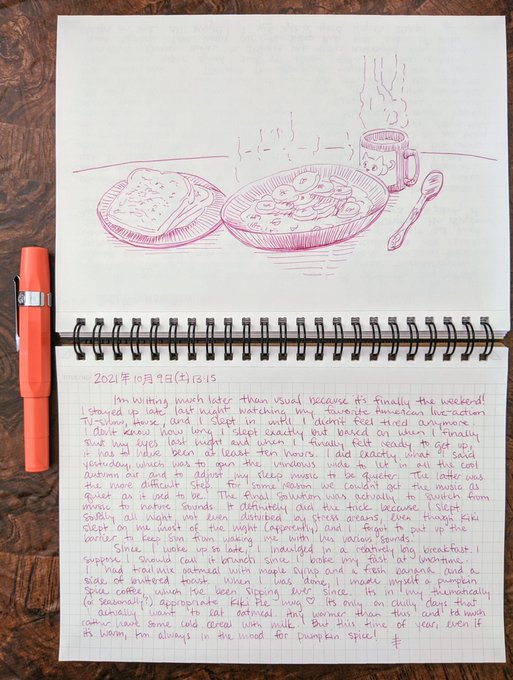 2021年10月9日(土) 13:15
I'm writing much later than usual because it's finally the weekend!
I stayed up late last night watching my favorite American live-action
TV-show, House, and I slept in until I didn't feel tired anymore.
I don't know how long I slept exactly but based on when I finally
shut my eyes last night and when I finally felt ready to get up,
it has to have been at least ten hours. I did exactly what I said
yesterday, which was to open the windows wide to let in all the cool
autumn air and to adjust my sleep music to be quieter. The latter was
the more difficult step. For some reason we couldn't get the music as
quiet as it used to be. The final solution was actually to switch from
music to nature sounds. It definitely did the trick because I slept
solidly all night not even disturbed by stress dreams, even though Kiki
slept on me most of the night (apparently) and I forgot to put up the
barrier to keep him from waking me with his various sounds.
Since I woke up so late, I indulged in a relatively big breakfast. I
suppose I should call it brunch since I broke my fast at lunchtime.
I had trail mix oatmeal with maple syrup and a fresh banana and a
side of buttered toast. When I was done, I made myself a pumpkin
spice coffee, which I've been sipping ever since. It's in my thematically
(or seasonally?) appropriate Kiki the mug ♡ It's only on chilly days that
I actually want to eat oatmeal. Any warmer than this and I'd much
rather have some cold cereal with milk. But this time of year, even if
it's warm, I'm always in the mood for pumpkin spice!